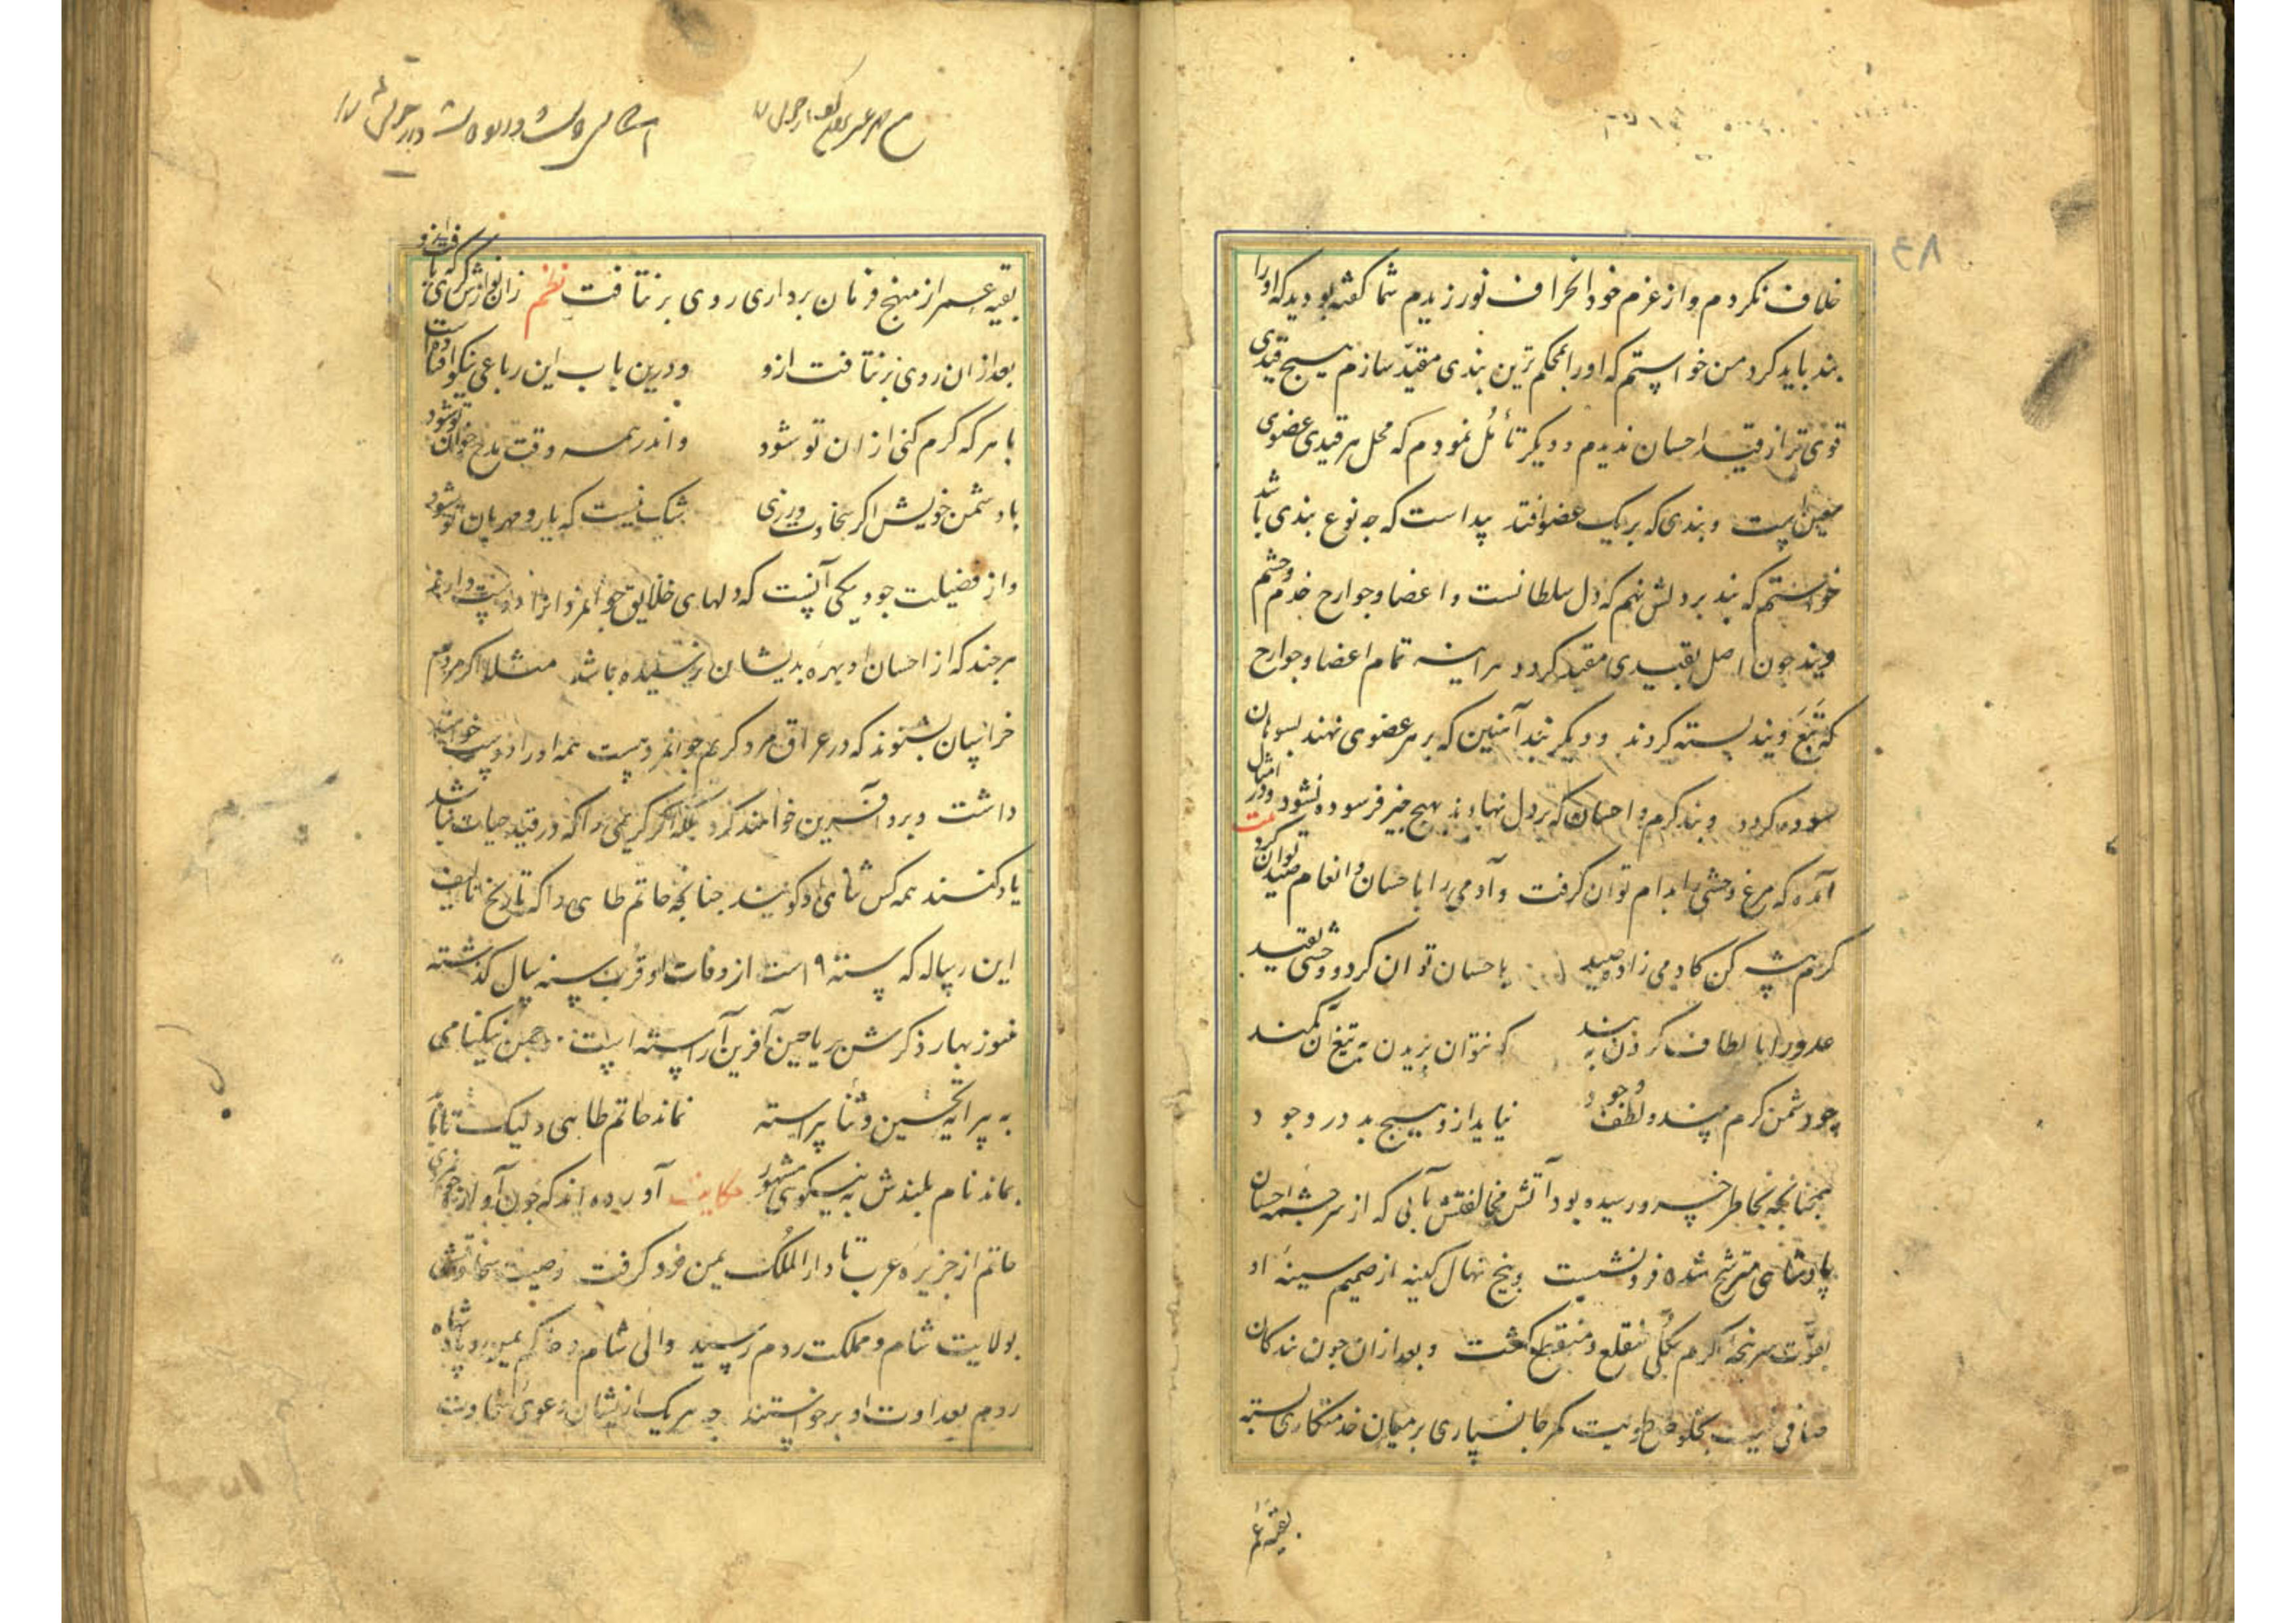 خلاف نکردم و از عزم خود انحراف نورزیدم شما کفته بودید که او را
بند باید کرد من خواستم که او را بمحکم ترین بندی مقید سازم هیچ قیدی
قوی تر از قید احسان ندیدم و دیکر تأمل نمودم که محل هر قیدی عضوی
معین است و بندی که بر یک عضو افتد پیداست که چه نوع بندی باشد
خواستم که بند بر دلش نهم که دل سلطانست و اعضا و جوارح خدم و حشم
ویند چون اصل بقیدی مقید کردد هراینه تمام اعضا و جوارح
که تبع ویند بسته کردند و دیکر بند آهنین که بر هر عضوی نهند بسوهان
سوده کردد و بند کرم و احسان که بر دل نهادند بهیچ چیز فرسوده نشود و در امثال
آمده که مرغ وحشی را بدام توان کرفت و آدمی را باحسان و انعام صید توان کرد
کرم پیشه کن کادمی زاده صید باحسان توان کرد و وحشی بقید
عدو را بالطاف کردن ببند که نتوان بریدن به تیغ آن کمند
چو دشمن کرم بیند و لطف و جود نیاید ازو هیچ بد در وجود
همچنانچه بخاطر خسرو رسیده بود آتش مخالفتش بآبی که از سرچشمه احسان
پادشاهی مترشح شده فرو نشست و بیخ نهال کینه از صمیم سینه او
بقوت سرپنجه کرم بکلی منقلع و منقطع کشت و بعد از آن چون بندکان
صافی نیت بخلوص طویت کمر جانسپاری بر میان خدمتکاری بسته
بقیه عمر
بقیه عمر از منهج فرمان برداری روی بر نتافت نظم زان نوازش کری که یافت ازو
بعد از ان روی بر نتافت ازو و درین باب این رباعی نیکو افتاده است
با هر که کرم کنی از آن تو شود واندر همه وقت مدح خوان تو شود
با دشمن خویش اکر سخاوت ورزی شک نیست که یار و مهربان تو شود
و از فضیلت جود یکی آنست که دلهای خلایق جوانمرد را دوست دارند
هر چند که از احسان او بهره بدیشان نرسیده باشد مثلا اکر مردم
خراسان بشنوند که در عراق مرد کریم جوانمردست همه او را دوست خواهند
داشت و بر و آفرین خواهند کرد بلکه اکر کریمی را که در قید حیات نباشد
یاد کنند همه کس ثنای او کویند چنانچه حاتم طایی را که تاریخ تالیف
این رساله که سنه ۹ است از وفات او قریب سنه سال کذشته
هنوز بهار ذکرش بریاحین آفرین آراسته است چمن نیکنامی
به پیرایه تحسین و ثنا پیراسته نماند حاتم طایی ولیک تا بابد
بماند نام بلندش به نیکوی مشهور حکایت آورده اند که چون آوازه جوانمردی
حاتم از جزیره عرب تا دار الملک یمن فرو کرفت و صیت سخاوتش
بولایت شام و مملکت روم رسید والی شام و حاکم یمن و پادشاه
روم بعداوت او برخواستند چه هر یک از یشان دعوی سخاوت